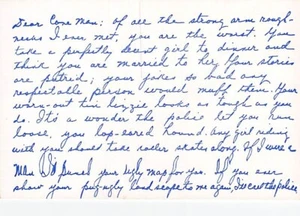 Dear Cave Man: of all the strong arm rough-
necks I ever met, you are the worst. You
take a perfectly decent girl to dinner and
think you are married to her. Your stories
are putrid; your jokes so bad any
respectable person would muff them. Your
worn-out tin lizzie looks as tough as you
do. It's a wonder the police let you run
loose, you hop-eared hound. Any girl riding
with you should take roller skates along. If I were a
man I'd punch your ugly map for you. If you ever
show your pug-ugly landscape to me again, I'll call the police